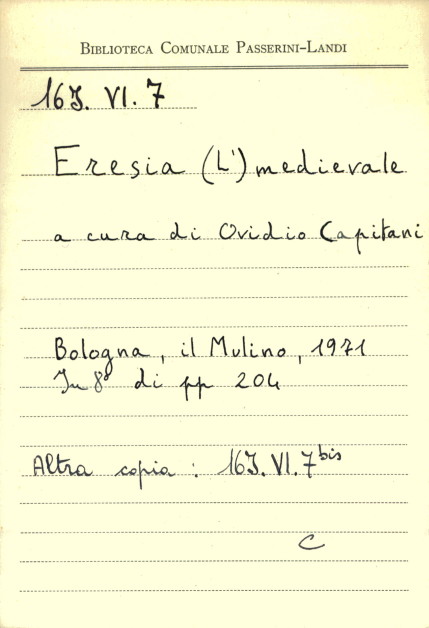 BIBLIOTECA COMUNALE PASSERINI-LANDI
16J. VI. 7
Eresia (L') medievale
a cura di Ovidio Capitani
Bologna, il Mulino, 1971
In 8° di pp 204
Altra copia : 16J. VI. 7 bis
C